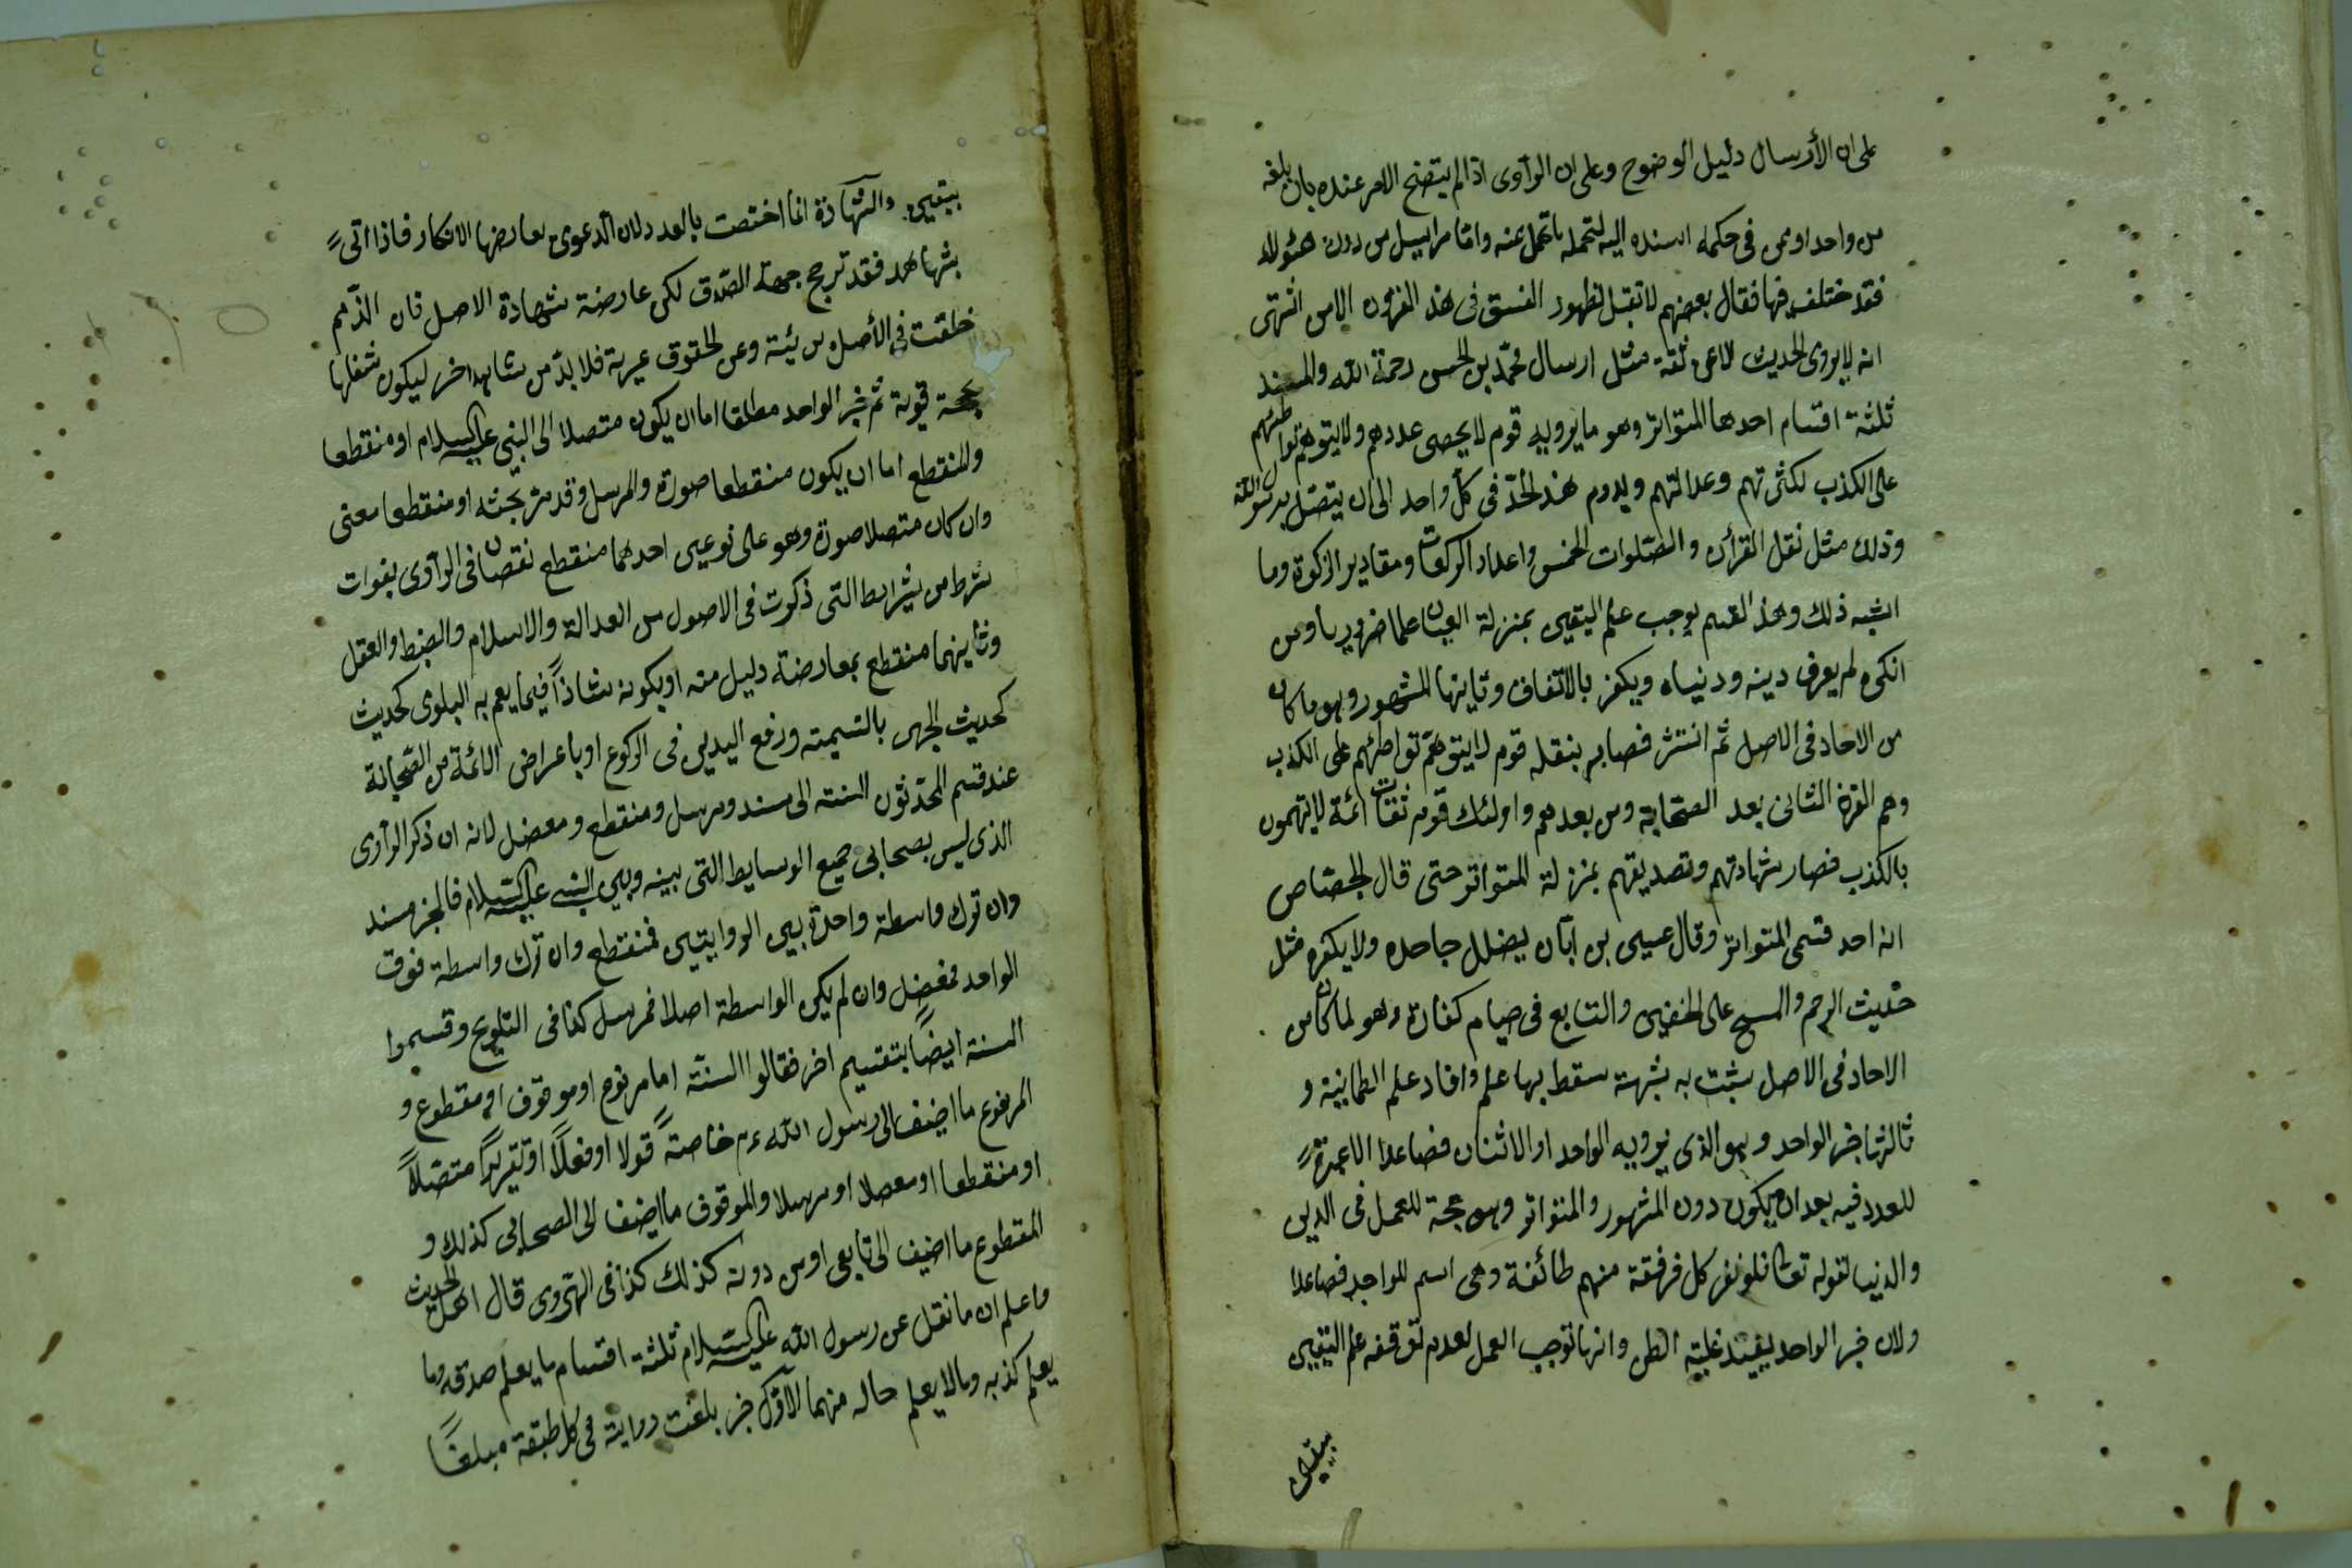 على ان الأرسال دليل الوضوح وعلى ان الرآوى اذا لم يتضح الامر عنده بان بلغه
من واحد اوممن فى حكمه اسنده اليه لتحمله ما تحمل عنه واما مراسيل من دون هئولاء
فقد ختلف فيها فقال بعضهم لا تقبل لظهور الفسق فى هذه القرون الا من اشتهى
انه لا يروى الحديث الا عن ثقة مثل ارسال محمّد بن الحسن رحمة الله والمسند
ثلثة اقسام احدها المتواتر وهو ما يرويه قوم لا يحصى عددهم ولا يتوهّم تواطئهم
على الكذب لكثرتهم وعدالتهم ويدوم هذ الحدّ فى كلّ واحد الى ان يتصّل برسول الله
وذلك مثل نقل القرأن والصّلوات الخمس واعداد الركعات ومقادير الزكوة وما
اشبه ذلك وهذ القسم يوجب علم اليقين بمنزلة العيان علما ضروريا ومن
انكره لم يعرف دينه ودنياه ويكفر بالاتّفاق وثاينها المشهور وهو ما كان
من الاحاد فى الاصل ثم انتشر فصار ينقله قوم لا يتوهّم تواطئهم على الكذب
وهم القرن الثانى بعد الصّحابة ومن بعدهم واولئك قوم ثقات ائمّة لا يتهمون
بالكذب فصار شهادتهم وتصديقهم بمنزلة المتواتر حتى قال الجصّاص
انه احد قسمى المتواتر وقال عيسى بن ابّان يضلل جاحده ولا يكفره مثل
حديث الرجم والمسح على الخفين والتتابع فى صيام كفّارة وهو لما كان من
الاحاد فى الاصل يثبت به شبهة سقط بها علم وافاد علم الطمانينة و
ثالثها خبر الواحد وهو الذى يرويه الواحد او الاثنان فصاعدا لا عبرة
للعدد فيه بعد ان يكون دون المشهور والمتواتر وهو حجة للعمل فى الدين
والدنيا لقوله تعالى فلولا نفر كل فرقة منهم طائفة وهى اسم للواحد فصاعدا
ولان خبر الواحد يفيد غلبة الظن وانها توجب العمل لعدم توقفه علم اليقين
بيقين
بيقين والشّهادة انما اختصت بالعدد لان الدعوى يعارضها الانكار فاذا اتى
بشهاهد فقد ترجح جهة الصّدق لكن عارضة شهادة الاصل فان الذّمم
خلقت فى الأصل بريئة وعن الحقوق عرية فلا بدّ من شاهد اخر ليكون شغلها
بحجة قوية ثم خبر الواحد مطلقا اما ان يكون متصلا الى النبى عليه السلام او منقطعا
والمنقطع اما ان يكون منقطعا صورة والمرسل وقد مرّ بحثه او منقطعا معنى
وان كان متصلا صورة وهو على نوعين احدهما منقطع نقصان فى الرآوى بفوات
شرط من شرايط التى ذكرت فى الاصول من العدالة والاسلام والضبط والعقل
وثاينهما منقطع بمعارضة دليل منه او يكونه شاذاً فيما يعم به البلوى كحديث
كحديث الجهر بالتسيمته ورفع اليدين فى الركوع او باعراض الائمّة من الصّحابة
عند قسم المحدّثون السنته الى مسند ومرسل ومنقطع ومعضل لانه ان ذكر الرآوى
الذى ليس بصحابى جميع الوسايط التى بينه وبين النبى عليه السّلام فالخبر مسند
وان ترك واسطة واحدة بين الروايتين فمنقطع وان ترك واسطة فوق
الواحد فمعضل وان لم يكن الواسطة اصلا فمرسل كذا فى التلويح وقسموا
السنة ايضاً بتقسيم اخر فقالوا السنّة اما مرفوع او موقوف او مقطوع و
المرفوع ما اضيف الى رسول الله عم خاصةً قولا او فعلاً او تقريراً متصّلاً
او منقطعا او معصلا او مرسلا والموقوف ما اضيف الى الصحابى كذلك و
المقطوع ما اضيف الى تابعى او من دونه كذلك كذا فى الهّروى قال اهل الحديث
واعلم ان ما نقل عن رسول الله عليه السّلام ثلثة اقسام ما يعلم صدقه وما
يعلم كذبه وما لا يعلم حاله منهما الاوّل خبر بلغت رواية فى كل طبقة مبلغاً